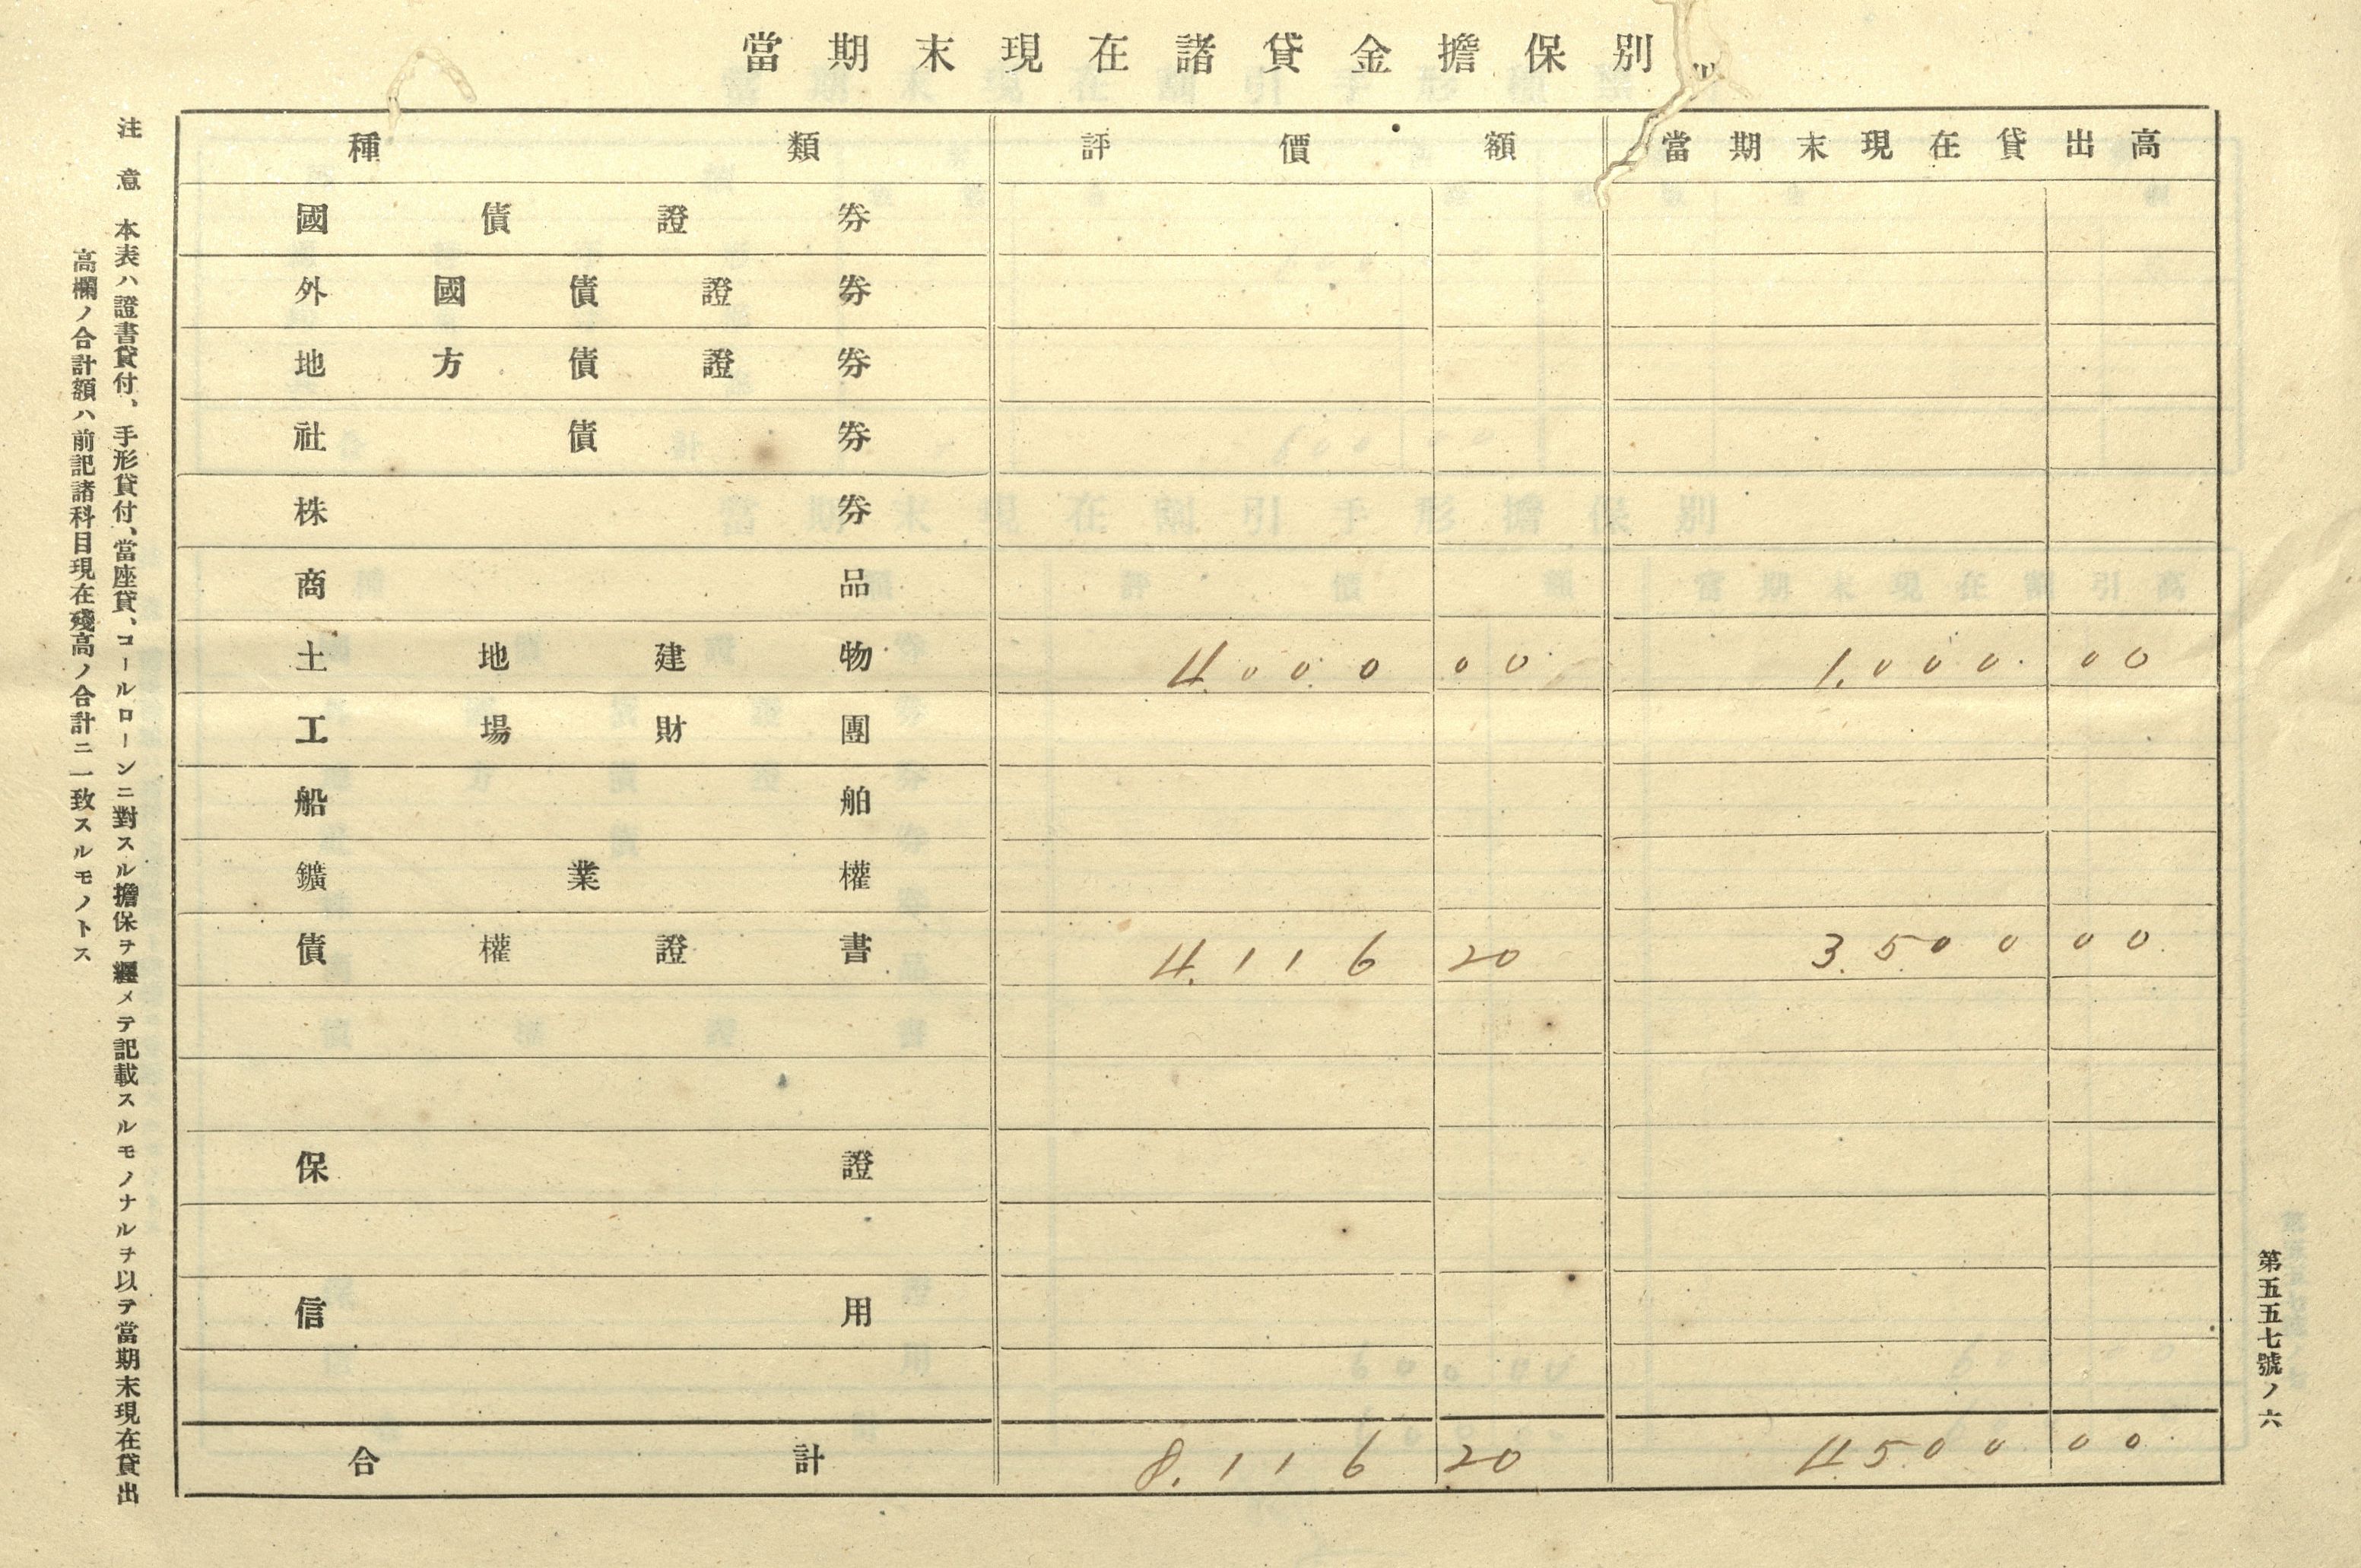 當期末現在諸貸金擔保別
種類 評價額 當期末現在貸出高
國債證券
外國債證券
地方債證券
社債券
株券
商品
土地建物 4.000 00 1.000. 00
工場財團
船舶
鑛業權
債權證書 4.116 20 3.500 00
保證
信用
合計 8.116 20 4.500 00
注意 本表ハ證書貸付、手形貸付、當座貸、コールローンニ對スル擔保ヲ纒メテ記載スルモノナルヲ以テ當期末現在貸出
高欄ノ合計額ハ前記諸科目現在殘高ノ合計ニ一致スルモノトス
第五五七號ノ六